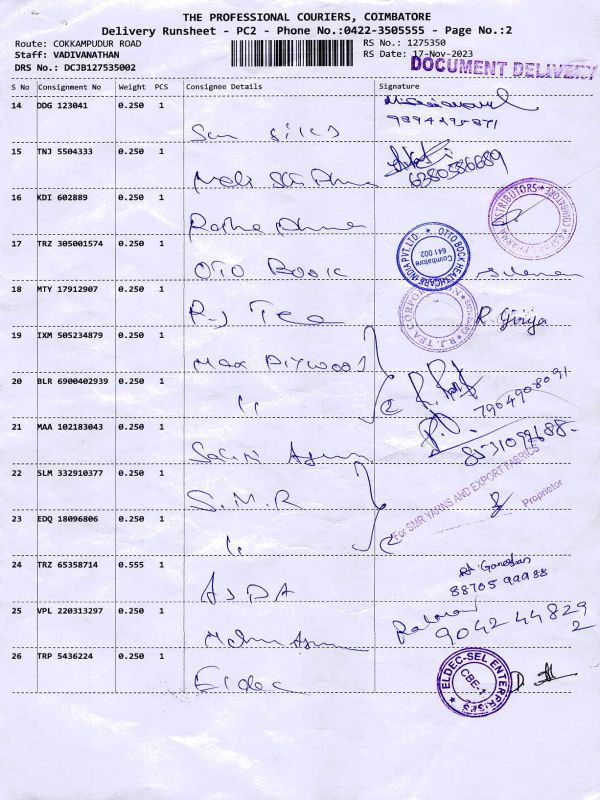 THE PROFESSIONAL COURIERS, COIMBATORE
Delivery Runsheet - PC2 - Phone No.:0422-3505555 - Page No.:2
Route: COKKAMPUDUR ROAD
RS No.: 1275350
Staff: VADIVANATHAN
RS Date: 17-Nov-2023
DRS No.: DCJB127535002
DOCUMENT DELIVERY
S No Consignment No Weight PCS Consignee Details Signature
14 DDG 123041 0.250 1
15 TNJ 5504333 0.250 1
6380586689
16 KDI 602889 0.250 1
DISTRIBUTORS
17 TRZ 305001574 0.250 1
OTTO BOCK HEALTHCARE INDIA PVT. LTD.
Coimbatore
641 002
18 MTY 17912907 0.250 1
R-J Tea
R.J. TEA CORPORATION
R. Girija
19 IXM 505234879 0.250 1
Max Plywood
20 BLR 6900402939 0.250 1
"
2
7904908091
21 MAA 102183043 0.250 1
22 SLM 332910377 0.250 1
S.M.R
For SMR YARNS AND EXPORT FABRICS
Proprietor
23 EDQ 18096806 0.250 1
"
2
24 TRZ 65358714 0.555 1
Ganeshan
88705 99988
25 VPL 220313297 0.250 1
9042 44829
2
26 TRP 5436224 0.250 1
Eldec
ELDEC-SEL ENTERPRISES
CBE-1